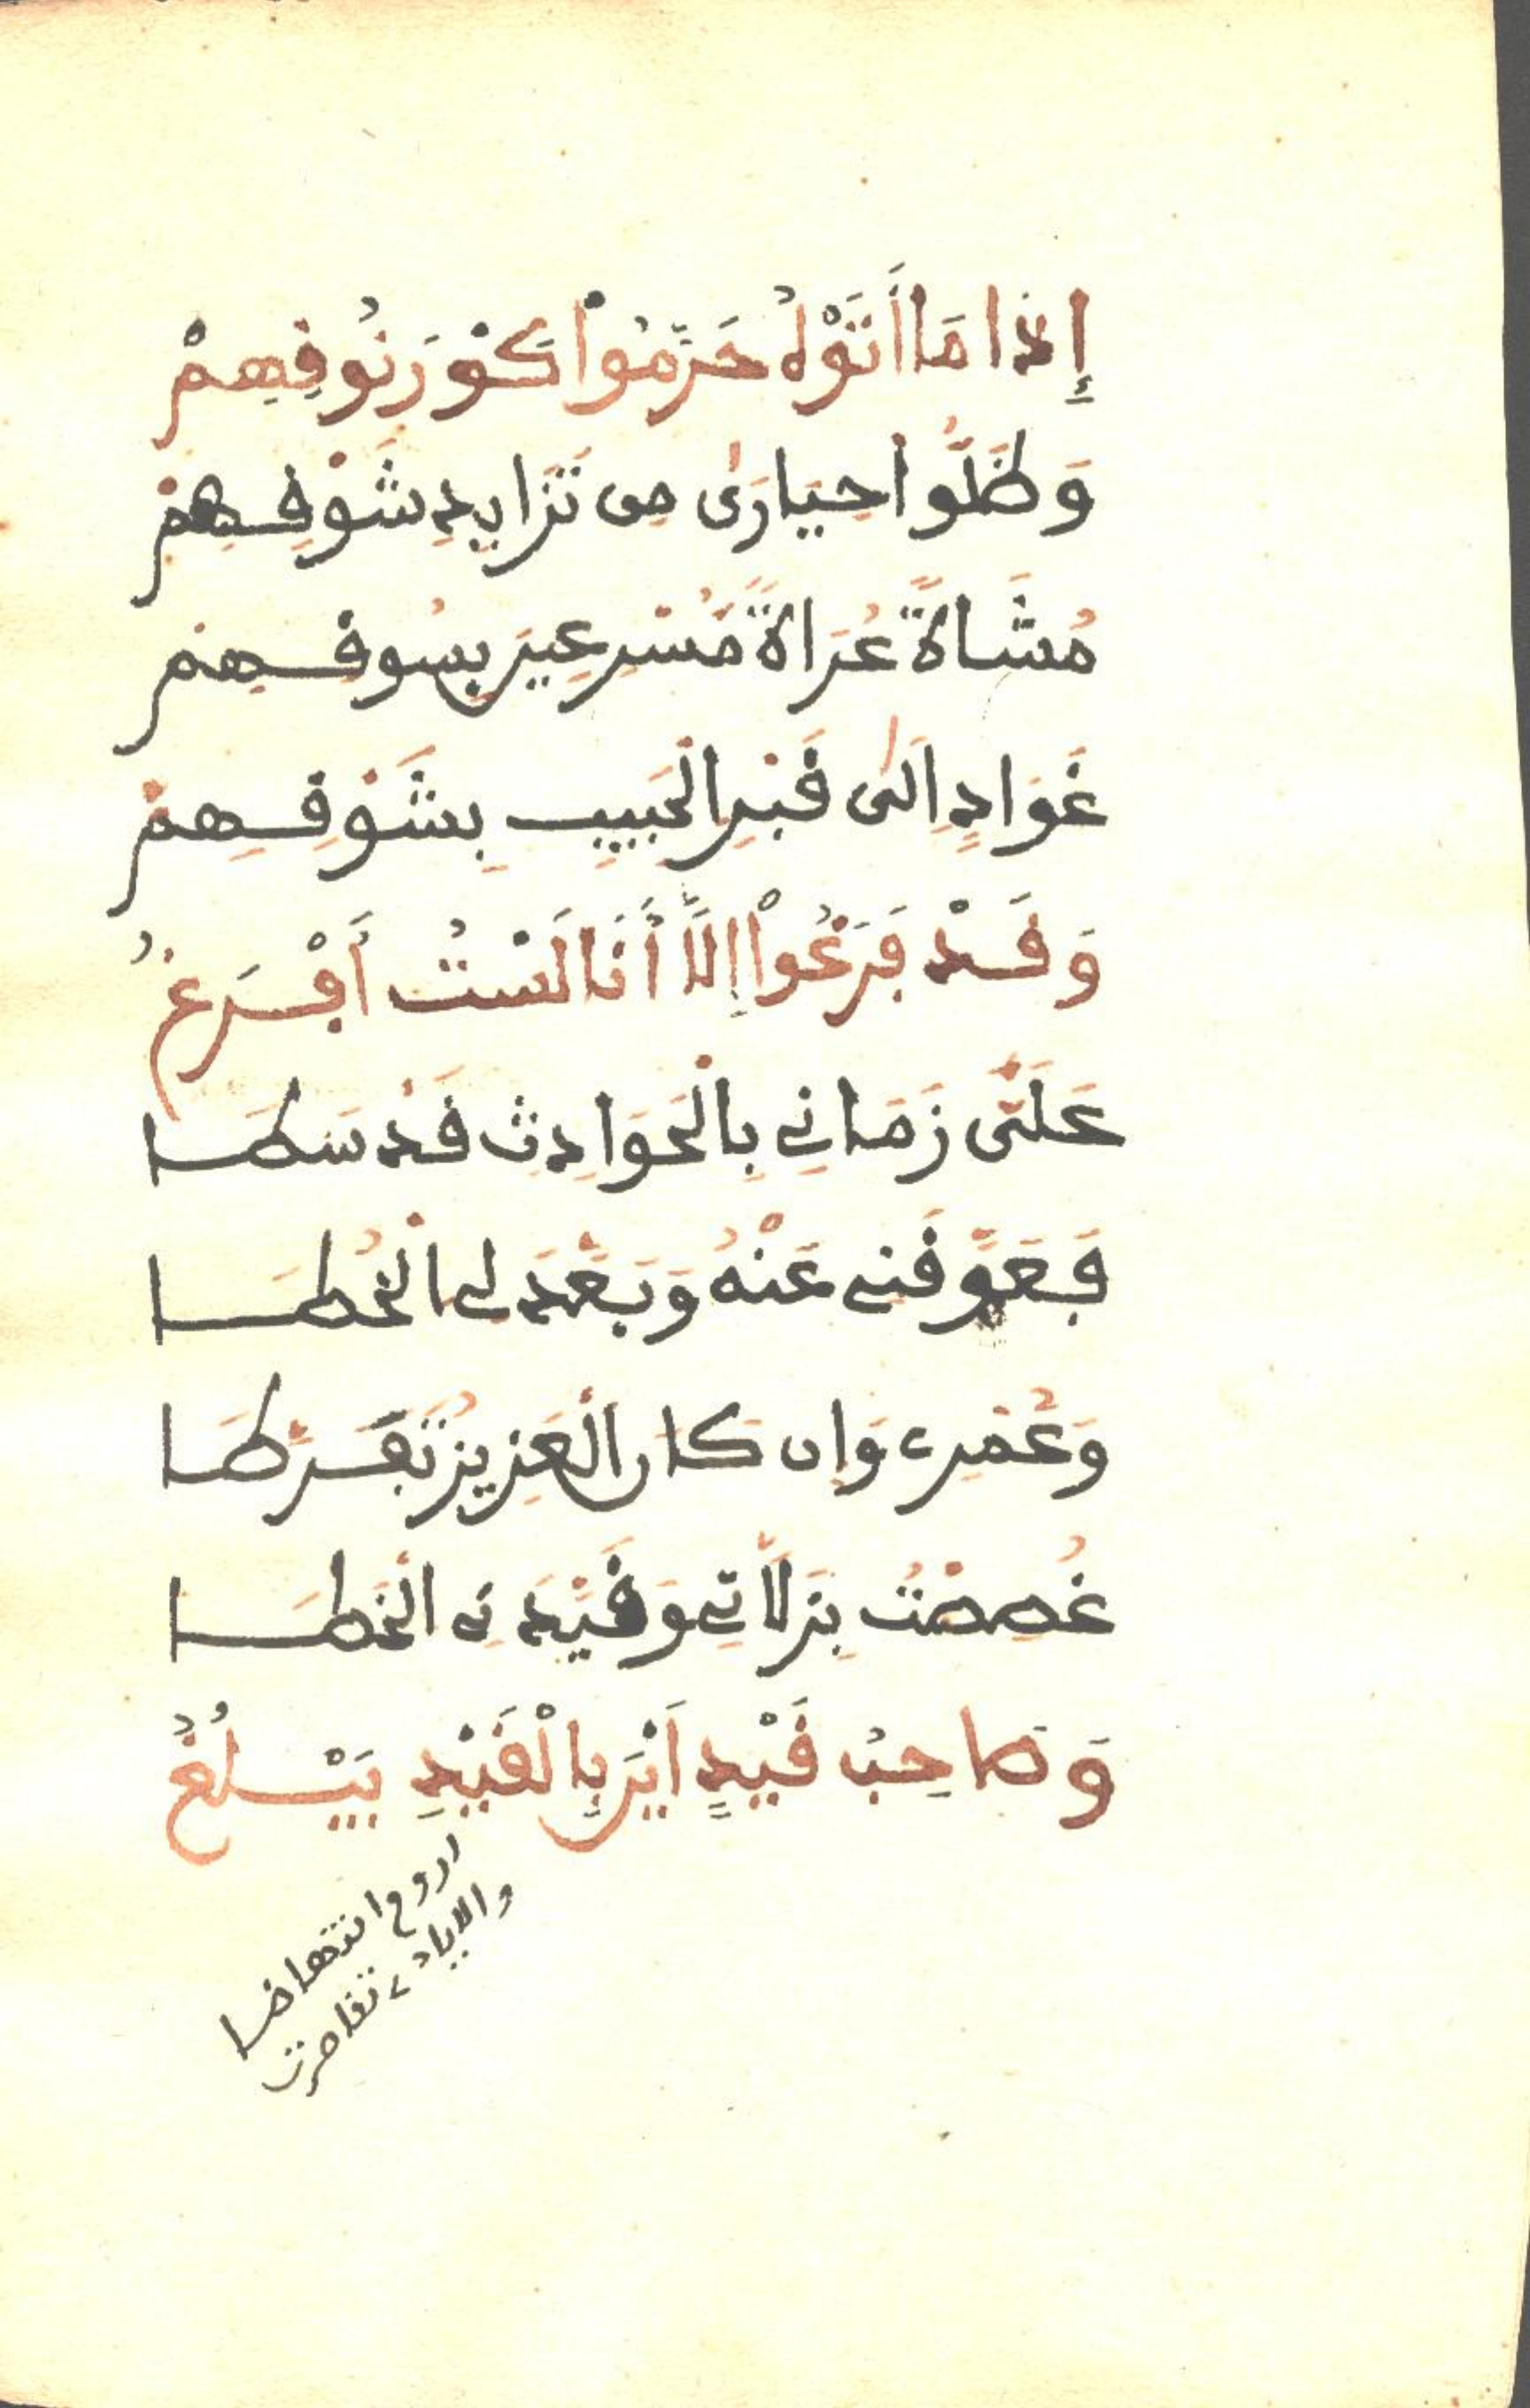 إِذَا مَا أَتَوْهُ حَرَّمُوا كَوْرَ نُوقِهِمْ
وَظَلُّوا حَيَارَىٰ مِن تَزَايِدِ شَوْقِهِمْ
مُشَاةً عُرَاةً مُسْرِعِينَ بِسُوقِهِمْ
غَوَادٍ اِلَىٰ قَبْرِ الْحَبِيبِ بِشَوْقِهِمْ
وَقَدْ فَرَغُواْ إِلَّا أَنَا لَسْتُ أَفْرَغُ
عَلَىَّ زَمَانِي بِالْحَوَادِثِ قَدْ سَطَا
فَعَوَّقَنِي عَنْهُ وَبَعَّدَ لِي الْخُطَا
وَعُمْرِي وَإِن كَانَ الْعَزِيزُ تَفَرَّطَا
غُصِصْتُ بِزَلَّاتِي وَقَيَّدَنِي الْخَطَا
وَصَاحِبُ قَيْدٍ أَيْنَ بِالْقَيْدِ يَبْلُغُ
اروم انتهاضا
والايادي تقاصرت